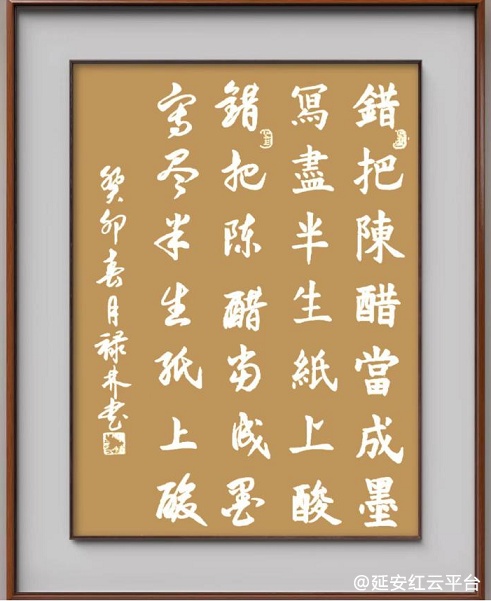 錯把陳醋當成墨
寫盡半生紙上酸
錯把陈醋当成墨
写尽半生纸上酸
癸卯春月禄林书
@延安红云平台